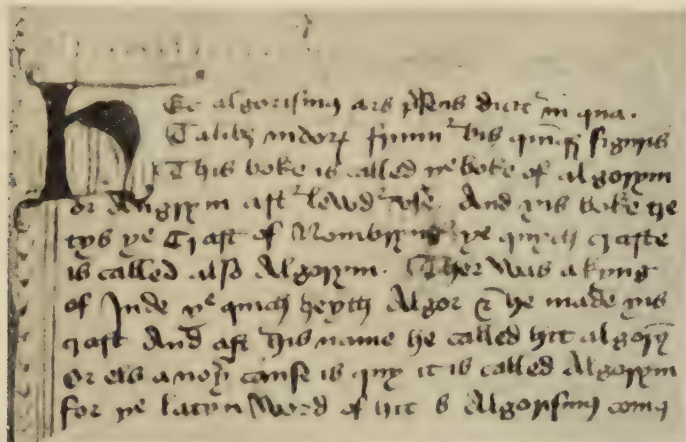 Hec algorismus ars p̄sens dicit᷑ in qua.
Talibȝ indoꝝ fruim᷑ bis quinqȝ figuris
This boke is called þe boke of algorym
or Augrym aft᷑ lewd᷑ vse. And þis boke tre
tys þe Craft of Nombryng᷑ þe quych crafte
is called also Algorym. Ther was a kyng
of Inde þe quich heyth Algor & he made þis
craft And aft᷑ his name he called hit algorȳ
Or els anoþ᷑ cause is quy it is called Algorym
for þe latyn word of hit s Algorismus comes